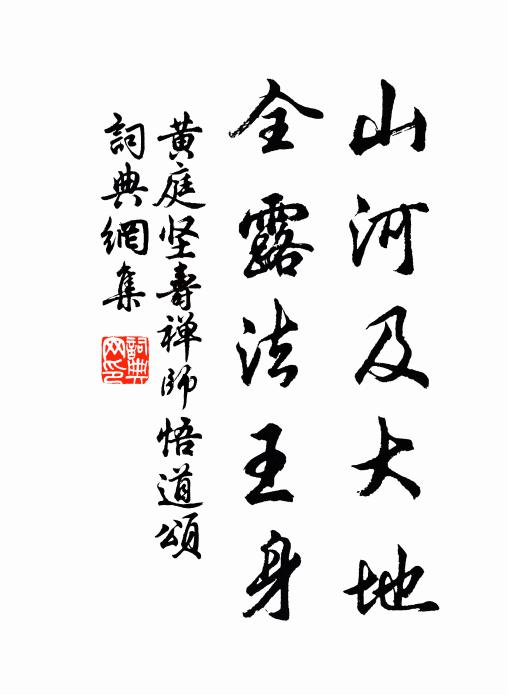 山河及大地
全露法王身
黄庭坚壽禅師悟道頌
詞典網集
詞典
网印